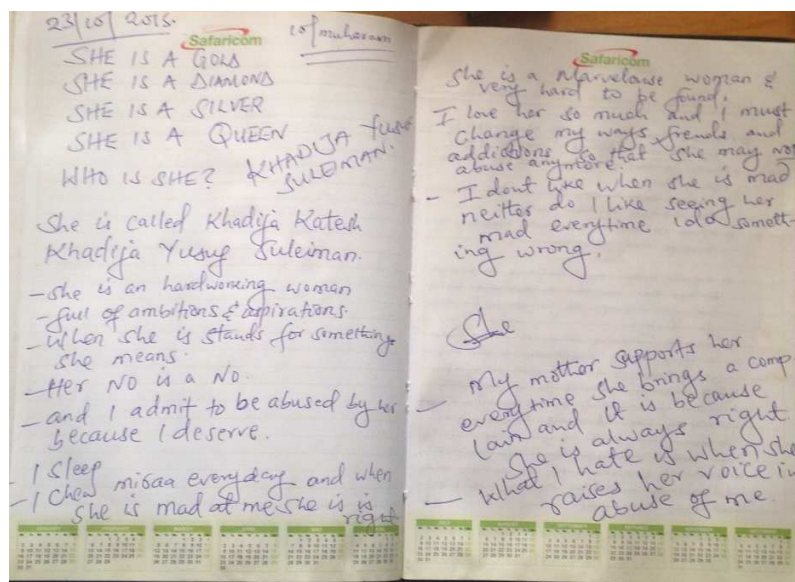 23/10/2015.
Safaricom
10/muharam
SHE IS A GOLD
SHE IS A DIAMOND
SHE IS A SILVER
SHE IS A QUEEN
WHO IS SHE? KHADIJA YUSUF
SULEIMAN.
She is called Khadija Katesh
Khadija Yusuf Suleiman.
- She is an hardworking woman
- full of ambitions & aspirations.
- When she is stands for something
she means.
- Her NO is a NO.
- and I admit to be abused by her
because I deserve.
- I Sleep
- I Chew miraa everyday and when
she is mad at me she is is
right
Safaricom
She is a Marvelouse woman &
very hard to be found.
I love her so much and I must
change my ways, frends and
addictions so that she may not
abuse anymore.
- I dont like when she is mad
neitter do I like seeing her
mad everytime I do somett-
ing wrong.
She
- My mother supports her
everytime she brings a comp
lain and it is because
She is always right
- What I hate is when she
raises her voice in
abuse of me.